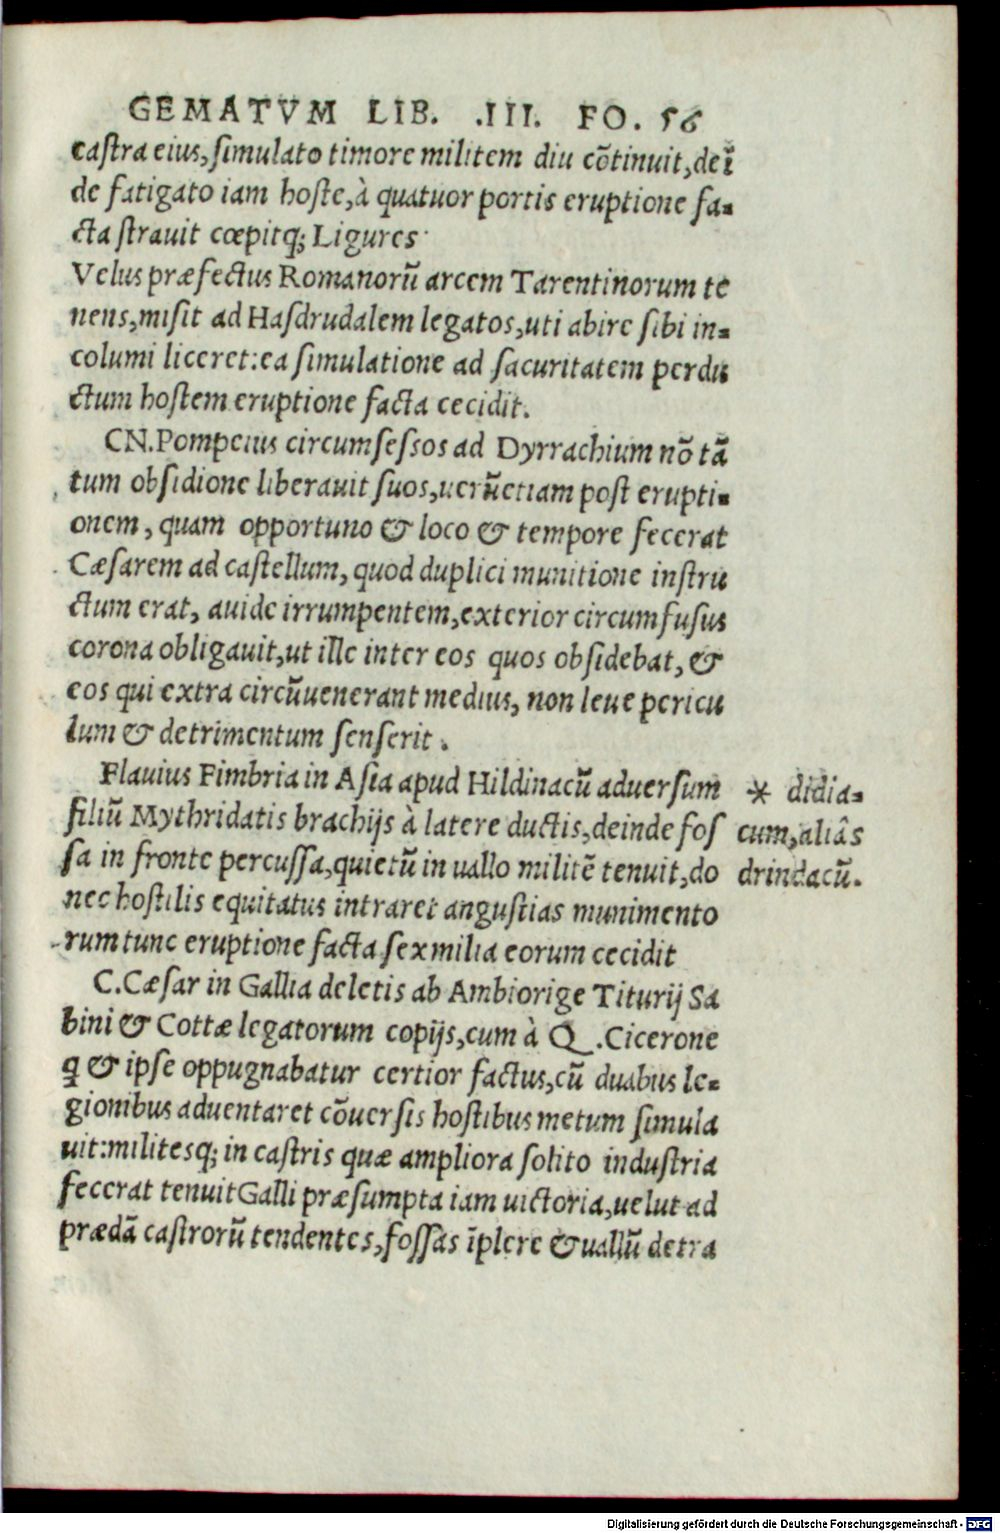 GEMATVM LIB. .III. FO. 56
castra eius, simulato timore militem diu cōtinuit, deī
de fatigato iam hoste, à quatuor portis eruptione fa-
cta strauit cœpitq; Ligures
Velus præfectus Romanorū arcem Tarentinorum te
nens, misit ad Hasdrudalem legatos, uti abire sibi in-
columi liceret: ea simulatione ad sacuritatem perdu
ctum hostem eruptione facta cecidit.
CN. Pompeius circumsessos ad Dyrrachium nō tā
tum obsidione liberauit suos, uerūetiam post erupti-
onem, quam opportuno & loco & tempore fecerat
Cæsarem ad castellum, quod duplici munitione instru
ctum erat, auide irrumpentem, exterior circumfusus
corona obligauit, ut ille inter eos quos obsidebat, &
eos qui extra circūuenerant medius, non leue pericu
lum & detrimentum senserit.
Flauius Fimbria in Asia apud Hildinacū aduersum
filiū Mythridatis brachijs à latere ductis, deinde fos
sa in fronte percussa, quietū in uallo militē tenuit, do
nec hostilis equitatus intraret angustias munimento
rum tunc eruptione facta sex milia eorum cecidit
C. Cæsar in Gallia deletis ab Ambiorige Titurij Sa
bini & Cottæ legatorum copijs, cum à Q. Cicerone
q̄ & ipse oppugnabatur certior factus, cū duabus le-
gionibus aduentaret cōuersis hostibus metum simula
uit: militesq; in castris quæ ampliora solito industria
fecerat tenuit Galli præsumpta iam uictoria, uelut ad
prædā castrorū tendentes, fossas īplere & uallū detra
* didia-
cum, aliâs
drindacū.
Digitalisierung gefördert durch die Deutsche Forschungsgemeinschaft - DFG